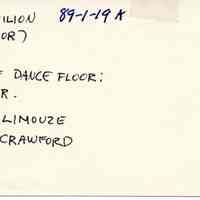 ILION 89-1-19 A
OR)
F DANCE FLOOR:
R.
LIMOUZE
CRAWFORD